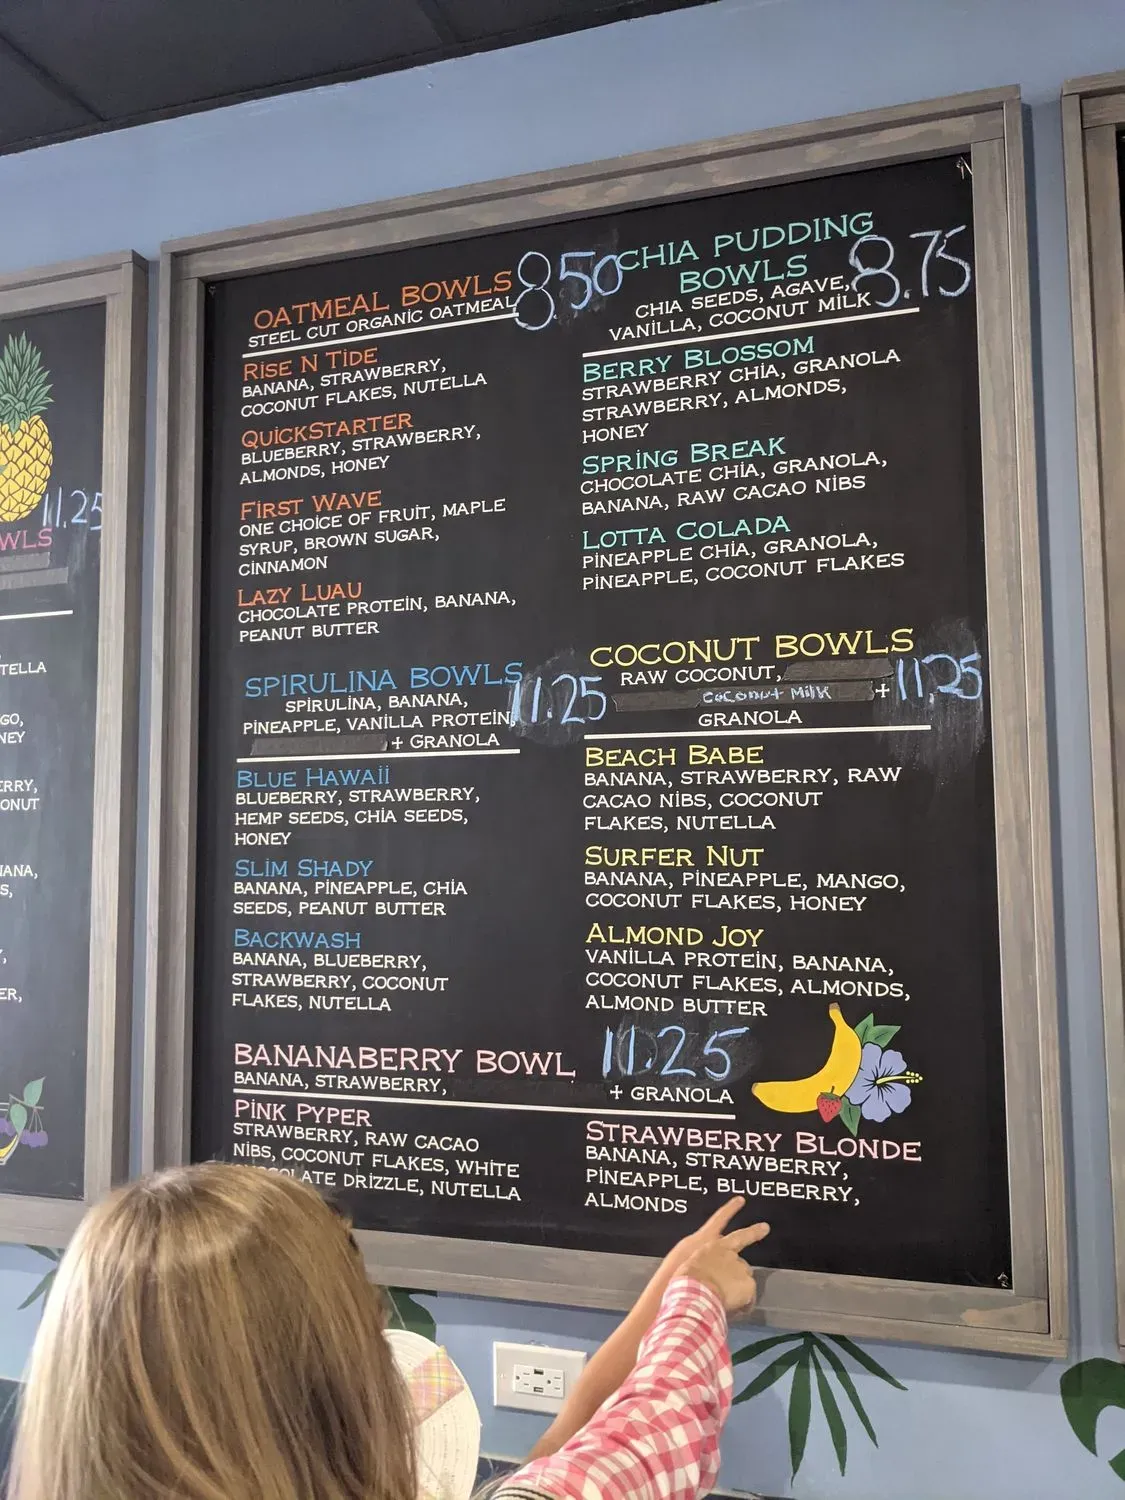 11.25
WLS
TELLA
GO,
NEY
ERRY,
ONUT
S,
ER,
OATMEAL BOWLS 8.50
STEEL CUT ORGANIC OATMEAL
RISE N TIDE
BANANA, STRAWBERRY,
COCONUT FLAKES, NUTELLA
QUICKSTARTER
BLUEBERRY, STRAWBERRY,
ALMONDS, HONEY
FIRST WAVE
ONE CHOICE OF FRUIT, MAPLE
SYRUP, BROWN SUGAR,
CINNAMON
LAZY LUAU
CHOCOLATE PROTEIN, BANANA,
PEANUT BUTTER
SPIRULINA BOWLS
SPIRULINA, BANANA, 11.25
PINEAPPLE, VANILLA PROTEIN,
+ GRANOLA
BLUE HAWAII
BLUEBERRY, STRAWBERRY,
HEMP SEEDS, CHIA SEEDS,
HONEY
SLIM SHADY
BANANA, PINEAPPLE, CHIA
SEEDS, PEANUT BUTTER
BACKWASH
BANANA, BLUEBERRY,
STRAWBERRY, COCONUT
FLAKES, NUTELLA
CHIA PUDDING
BOWLS 8.75
CHIA SEEDS, AGAVE,
VANILLA, COCONUT MILK
BERRY BLOSSOM
STRAWBERRY CHIA, GRANOLA
STRAWBERRY, ALMONDS,
HONEY
SPRING BREAK
CHOCOLATE CHIA, GRANOLA,
BANANA, RAW CACAO NIBS
LOTTA COLADA
PINEAPPLE CHIA, GRANOLA,
PINEAPPLE, COCONUT FLAKES
COCONUT BOWLS
RAW COCONUT, 11.25
coconut milk +
GRANOLA
BEACH BABE
BANANA, STRAWBERRY, RAW
CACAO NIBS, COCONUT
FLAKES, NUTELLA
SURFER NUT
BANANA, PINEAPPLE, MANGO,
COCONUT FLAKES, HONEY
ALMOND JOY
VANILLA PROTEIN, BANANA,
COCONUT FLAKES, ALMONDS,
ALMOND BUTTER
BANANABERRY BOWL 11.25
BANANA, STRAWBERRY, + GRANOLA
PINK PYPER
STRAWBERRY, RAW CACAO
NIBS, COCONUT FLAKES, WHITE
DRIZZLE, NUTELLA
STRAWBERRY BLONDE
BANANA, STRAWBERRY,
PINEAPPLE, BLUEBERRY,
ALMONDS